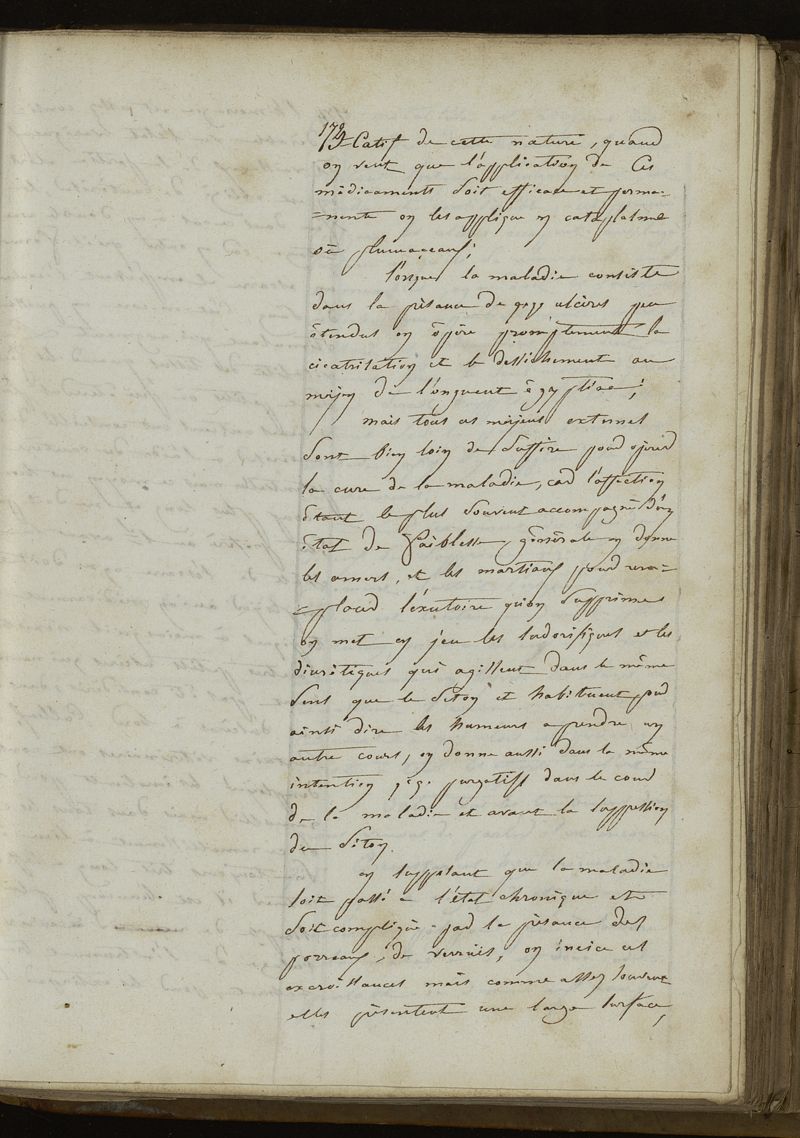 174
Catif de cette nature, quand
on veut que l'application de Ces
médicaments soit efficace et perma=
=nente on les applique en cataplasme
ou plumaceaux;
lorsque la maladie consiste
dans la présence de qqs ulcères peu
étendus on opère promptement la
cicatrisation et le dessichement au
moyen de l'onguent égyptiac;
mais tous ces moyens externes
sont bien loin de suffire pour opérer
la cure de la maladie, car l'affection
étant le plus souvent accompagné d'un
état de faiblesse générale on donne
les amers, et les martiaux pour rem=
=placer l'éxutoire qu'on supprime
on met en jeu les sudorifiques et les
diurétiques qui agissent dans le même
sens que le séton et habituent pour
ainsi dire les humeurs a prendre un
autre cours, on donne aussi dans la même
intention qqs purgatifs dans le cour
de la maladie et avant la suppression
du séton.
en supposant que la maladie
soit passé a l'état chronique et
soit compliqué par la présance des
porreaux, de verrues, on incise ces
excroissances mais comme assez souvent
elles présentent une large surface,